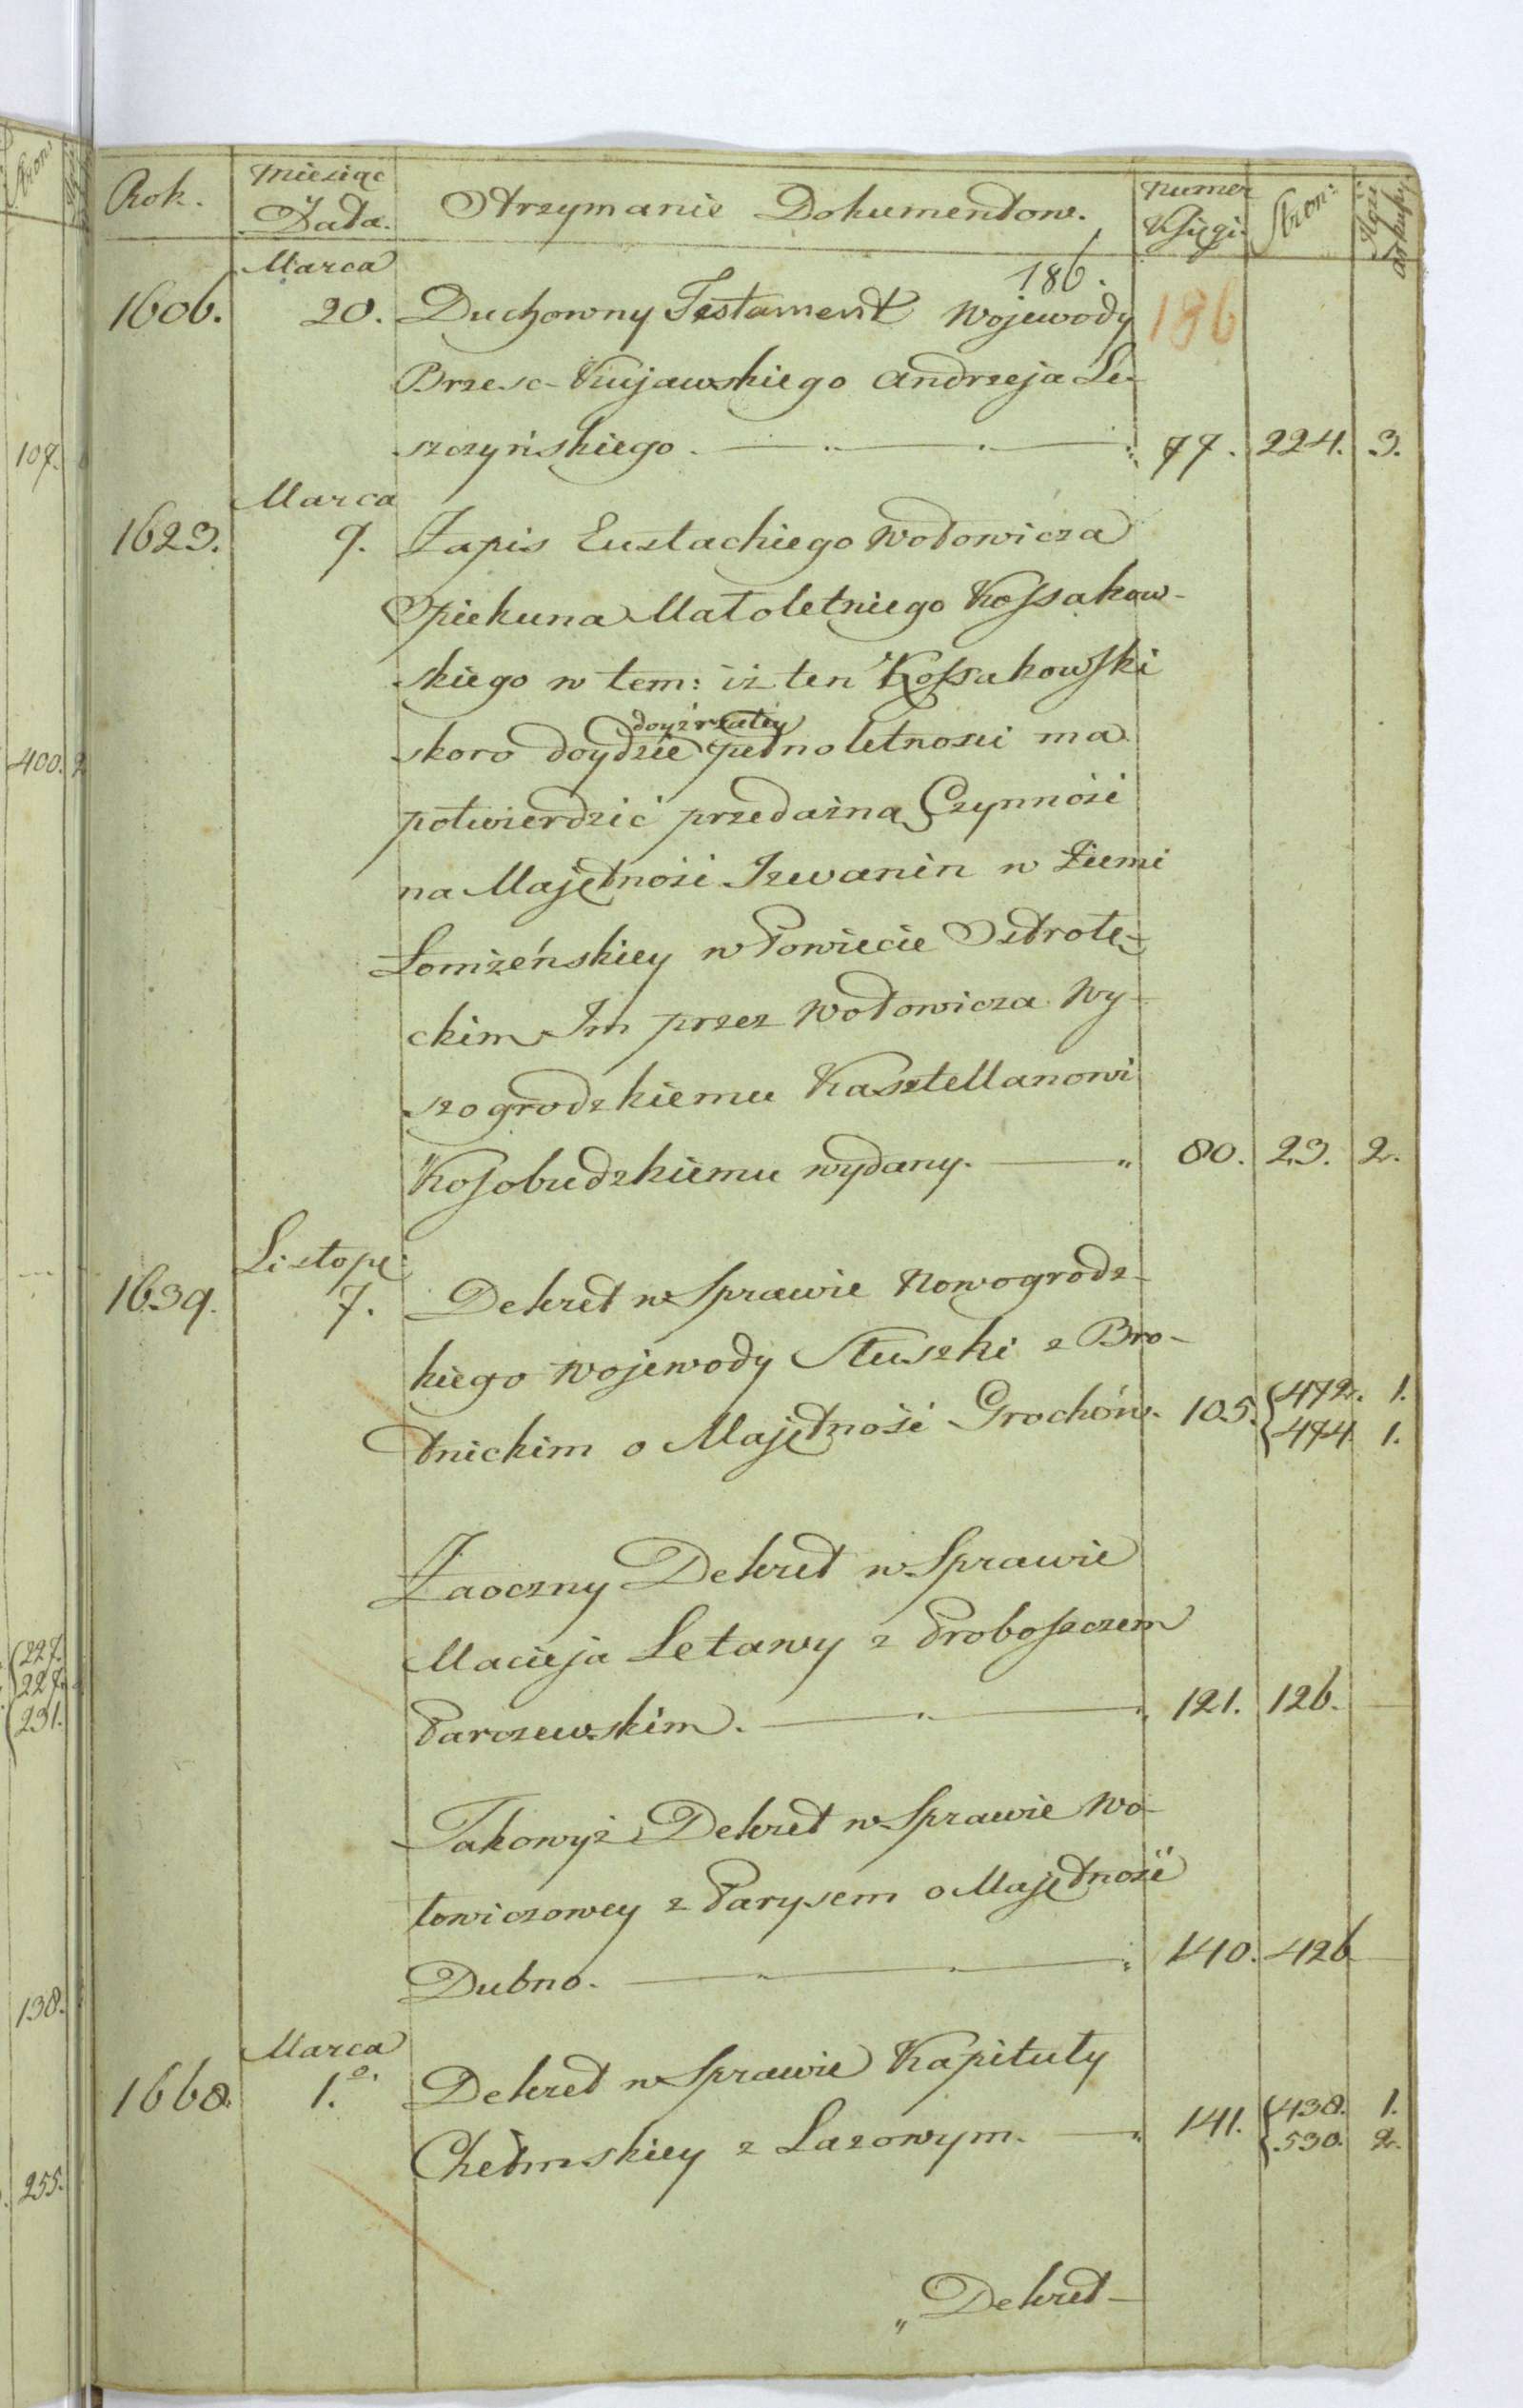 Stron:
Rok. Miesiąc Data. Otrzymanie Dokumentow. Numer Księgi. Stron:
186.
186
Marca
1606. 20. Duchowny Testament Wojewody
Brzesc-Kujawskiego Andrzeja Le-
szczyńskiego. 77. 224. 3.
107.
Marca
1623. 9. Zapis Eustachiego Wołowicza
Opiekuna Małoletniego Kossakow-
skiego w tem: iż ten Kossakowski
doyźrzałey
skoro doydzie pełnoletnosci ma
400. 2
potwierdzić przedażną Czynność
na Majętność Izwanin w Ziemi
Łomżeńskiey w Powiecie Ostrołę-
ckim Im przez Wołowicza Wy-
szogrodzkiemu Kasztellanowi
Kosobudzkiemu wydany. 80. 23. 2.
Listop:
1639. 7. Dekret w Sprawie Nowogrodz-
kiego Wojewody Słuszki z Bro-
dnickim o Majętność Grochów. 105. {472. 1.
{474. 1.
Zaoczny Dekret w Sprawie
Macieja Letawy z Proboszczem
{227.
227.
{231.
Parczewskim. 121. 126.
Takowyż Dekret w Sprawie Wo-
łowiczowey z Parysem o Majętność
Dubno. 140. 426
138.
Marca
1668. 1.o Dekret w Sprawie Kapituły
Chełmskiey z Lazowym. 141. {438. 1.
{530. 2.
255.
„Dekret